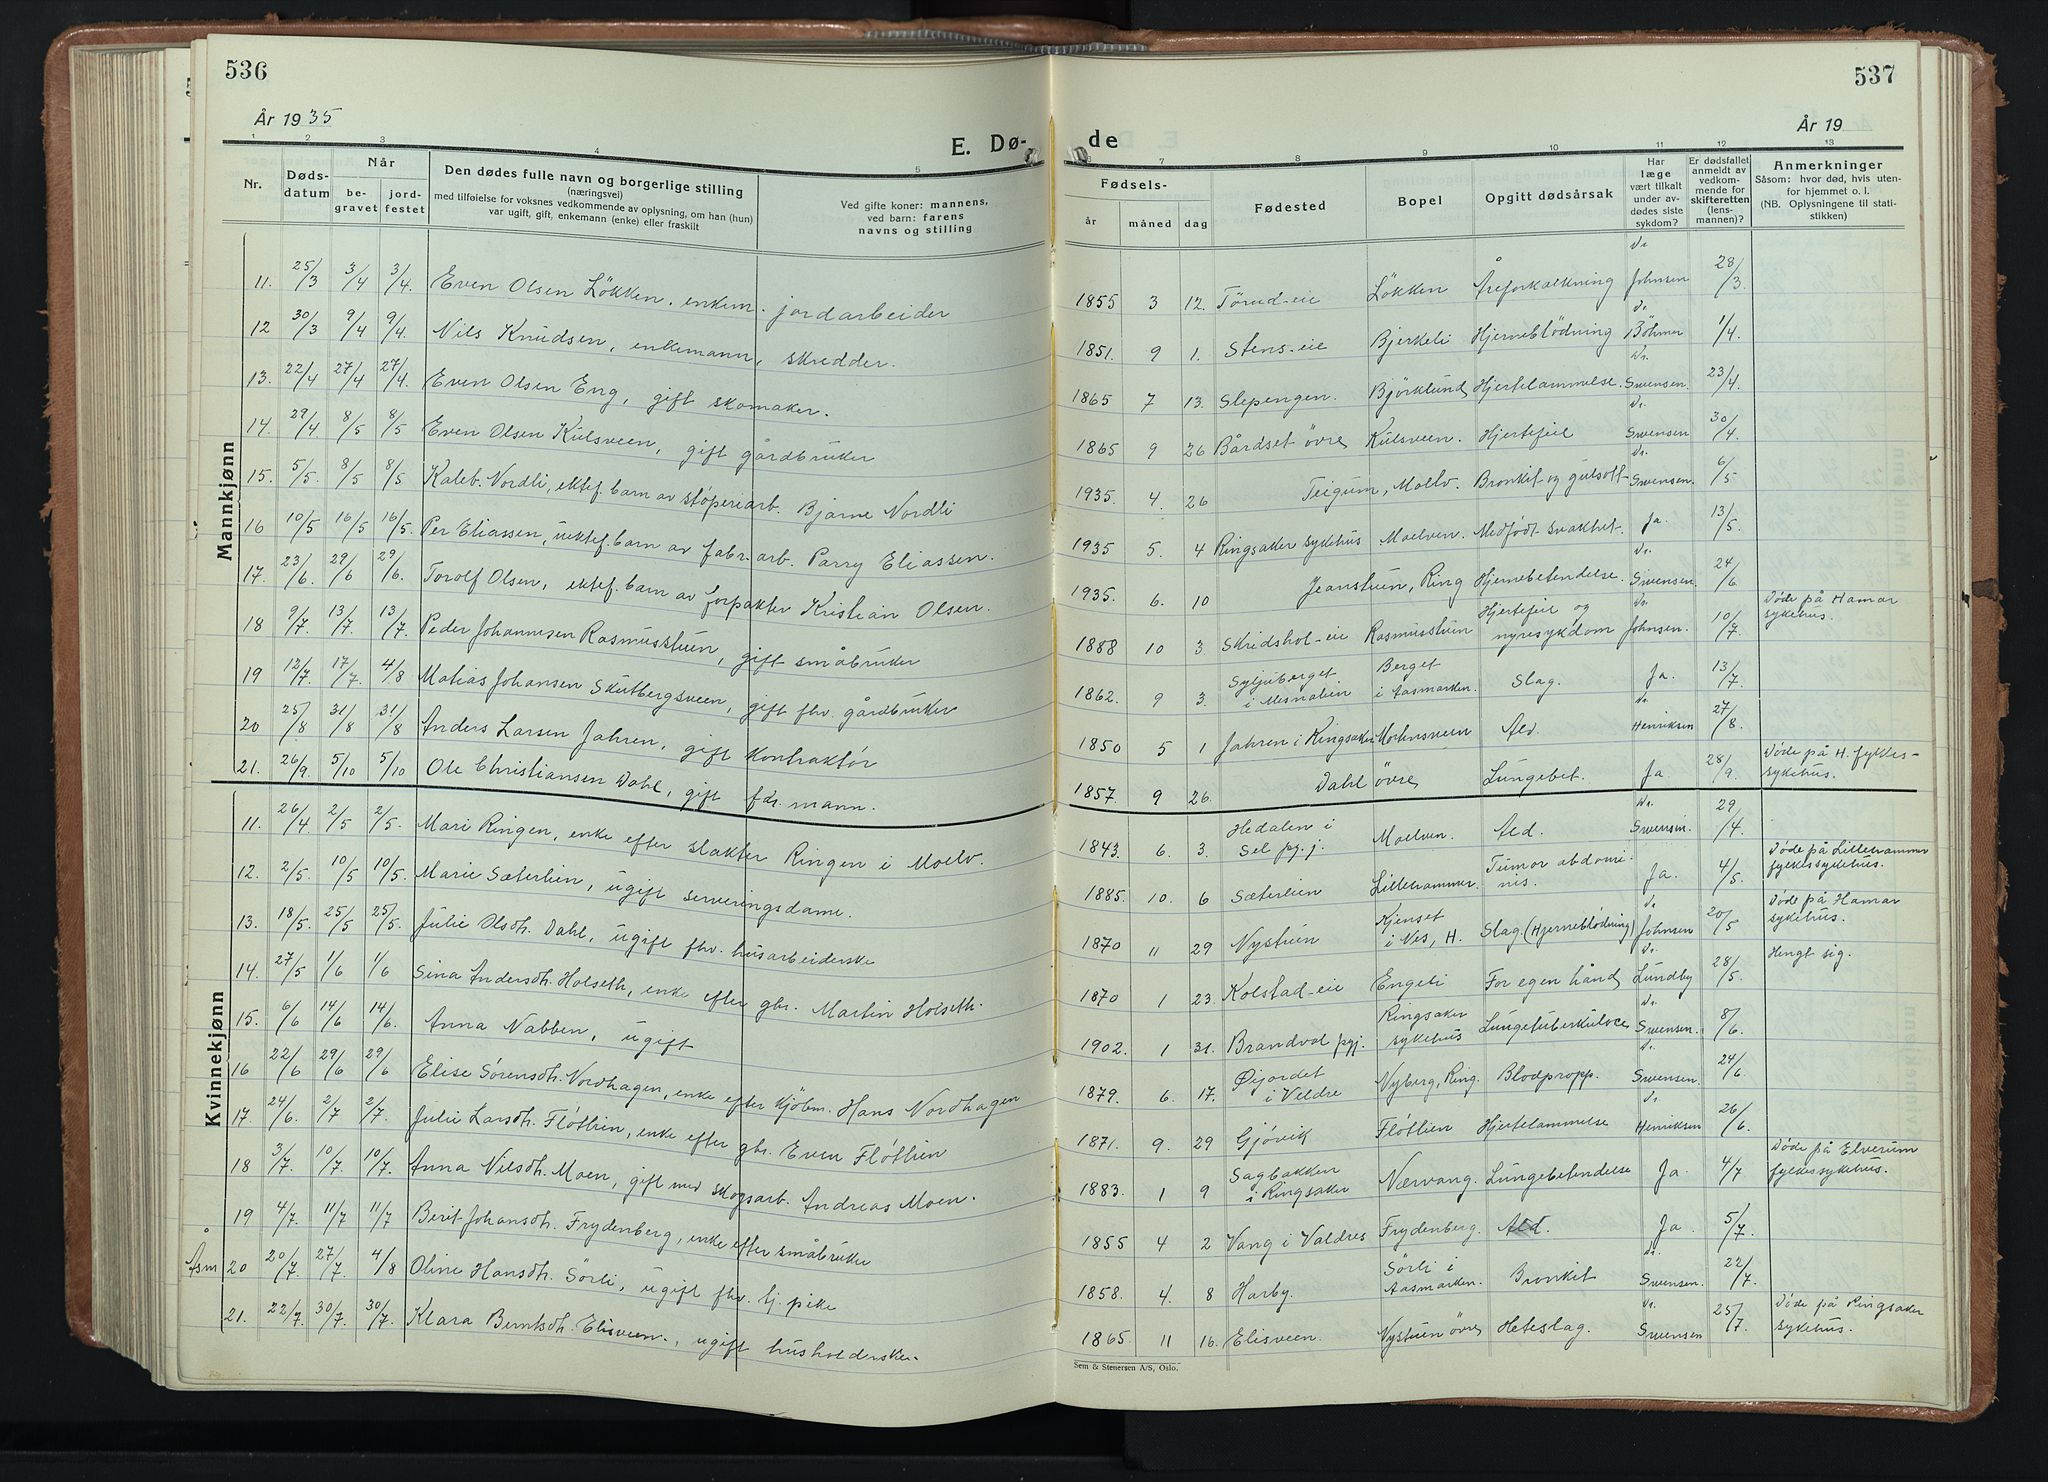 536
År 1935
E. Dø-
1 2 3 4 5
Nr.
Døds-
datum
Når
be-
gravet
jord-
festet
Den dødes fulle navn og borgerlige stilling
(næringsvei)
med tilføielse for voksnes vedkommende av oplysning, om han (hun)
var ugift, gift, enkemann (enke) eller fraskilt
Ved gifte koner: mannens,
ved barn: farens
navns og stilling
Mannkjønn
11. 25/3 3/4 3/4. Even Olsen Løkken, enkem. jordarbeider
12 30/3 9/4 9/4. Nils Knudsen, enkemann, skredder.
13. 22/4 27/4 27/4. Even Olsen Eng, gift skomaker.
14. 29/4 8/5 8/5 Even Olsen Kulsveen, gift gårdbruker
15. 5/5. 8/5 8/5 Kaleb Nordli, ektef. barn av støperiarb. Bjarne Nordli
16 10/5 16/5 16/5. Per Eliassen, uektef. barn av fabr.arb. Parry Eliassen.
17. 23/6 29/6 29/6. Torolf Olsen, ektef. barn av forpakter Kristian Olsen.
18 9/7. 13/7 13/7 Peder Johannesen Rasmusstuen, gift småbruker
19 12/7. 17/7. 4/8 Matias Johansen Skutbergsveen, gift fhv. gårdbruker
20 25/8 31/8 31/8 Anders Larsen Jahren, gift kontraktør
21. 26/9. 5/10 5/10 Ole Christiansen Dahl, gift fdr. mann.
Kvinnekjønn
11. 26/4 2/5 2/5. Mari Ringen, enke efter slakter Ringen i Moelv.
12. 2/5 10/5 10/5. Marie Sæterlien, ugift serveringsdame.
13. 18/5 25/5 25/5. Julie Olsdh. Dahl, ugift fhv. husarbeiderske
14. 27/5 1/6 1/6 Sina Andersdh. Holseth, enke efter gbr. Martin Holseth.
15. 6/6 14/6 14/6. Anna Nabben, ugift
16 22/6 29/6 29/6 Elise Sørensdh. Nordhagen, enke efter kjöbm. Hans Nordhagen
17. 24/6. 2/7 2/7. Julie Larsdh. Fløtlien, enke efter gbr. Even Fløtlien
18 3/7. 10/7. 10/7. Anna Nilsdh. Moen, gift med skogsarb. Andreas Moen.
19 4/7. 11/7 11/7 Berit Johansdh. Frydenberg, enke efter småbruker
Åsm 20 20/7. 27/7. 4/8 Oline Hansdh. Sörli, ugift fhv. tj. pike
21. 22/7. 30/7. 30/7. Klara Berntsdh. Elisveen, ugift husholderske.
537
de
År 19
7 8 9 10 11 12 13
Fødsels-
år måned dag
Fødested
Bopel
Opgitt dødsårsak
Har
læge
vært tilkalt
under av-
dødes siste
sykdom?
Er dødsfallet
anmeldt av
vedkom-
mende for
skifteretten
(lens-
mannen)?
Anmerkninger
Såsom: hvor død, hvis uten-
for hjemmet o. l.
(NB. Oplysningene til stati-
stikken)
1855 3 12. Törud-eie Løkken Åreforkalkning Dr. Johnsen 28/3.
1851. 9 1. Stens-eie Bjerkeli Hjerneblödning Dr. Böhmer 1/4.
1865 7 13. Slepengen. Bjørklund Hjertelammelse. Dr. Swensen. 23/4.
1865 9 26 Bårdset øvre Kulsveen. Hjertefeil Dr. Swensen 30/4.
1935. 4. 26 Teigum, Moelv. Bronkit og gulsott Dr. Swensen. 6/5
1935 5. 4 Ringsaker sykehus Moelven. Medfödt svakhet. Ja. 13/5.
1935. 6. 10 Jeanstuen, Ring Hjernebetendelse. Dr. Swensen. 24/6
1888 10 3. Skridshol-eie Rasmusstuen Hjertefeil og nyresykdom Dr. Johnsen. 10/7. Døde på Hamar sykehus.
1862. 9 3. Syljuberget i Mesnalien Berget i Aasmarken. Slag. Ja. 13/7.
1850 5 1 Jahren i Ringsaker Ald. Dr. Henriksen 27/8.
1857. 9 26. Dahl øvre Lungebet. Ja 28/9. Døde på H. fylkes-sykehus.
1843. 6. 3. Hedalen i Sel pgj. Moelven. Ald. Dr. Swensen. 29/4.
1885. 10. 6 Sæterlien Lillehammer. Tumor abdominis. Ja. 4/5. Døde på Lillehammer fylkessykehus.
1870 11 29 Nystuen Kjenset i Ves, H. Slag. (Hjerneblödning) Dr. Johnsen 20/5 Døde på Hamar sykehus.
1870 1 23. Kolstad-eie Engeli For egen hånd Dr. Lundby 28/5. Hengt sig.
1902. 1 31. Brandval pgj. Ringsaker sykehus Lungetuberkulose Dr. Swensen. 8/6.
1879. 6. 17. Øijordet i Veldre Nyberg, Ring. Blodpropp. Dr. Swensen. 24/6.
1871. 9. 29 Gjøvik Fløtlien Hjertelammelse Dr. Henriksen 26/6.
1883. 1 9 Sagbakken i Ringsaker Nærvang. Lungebetendelse Ja. 4/7 Døde på Elverum fylkessykehus.
1855 4 2 Vang i Valdres Frydenberg. Ald. Ja 5/7.
1858. 4. 8 Harby. Sörli i Aasmarken. Bronkit Dr. Swensen. 22/7.
1865 11 16. Elisveen. Nystuen øvre Heteslag. Dr. Swensen 25/7. Døde på Ringsaker sykehus.
Sem & Stenersen A/S, Oslo.